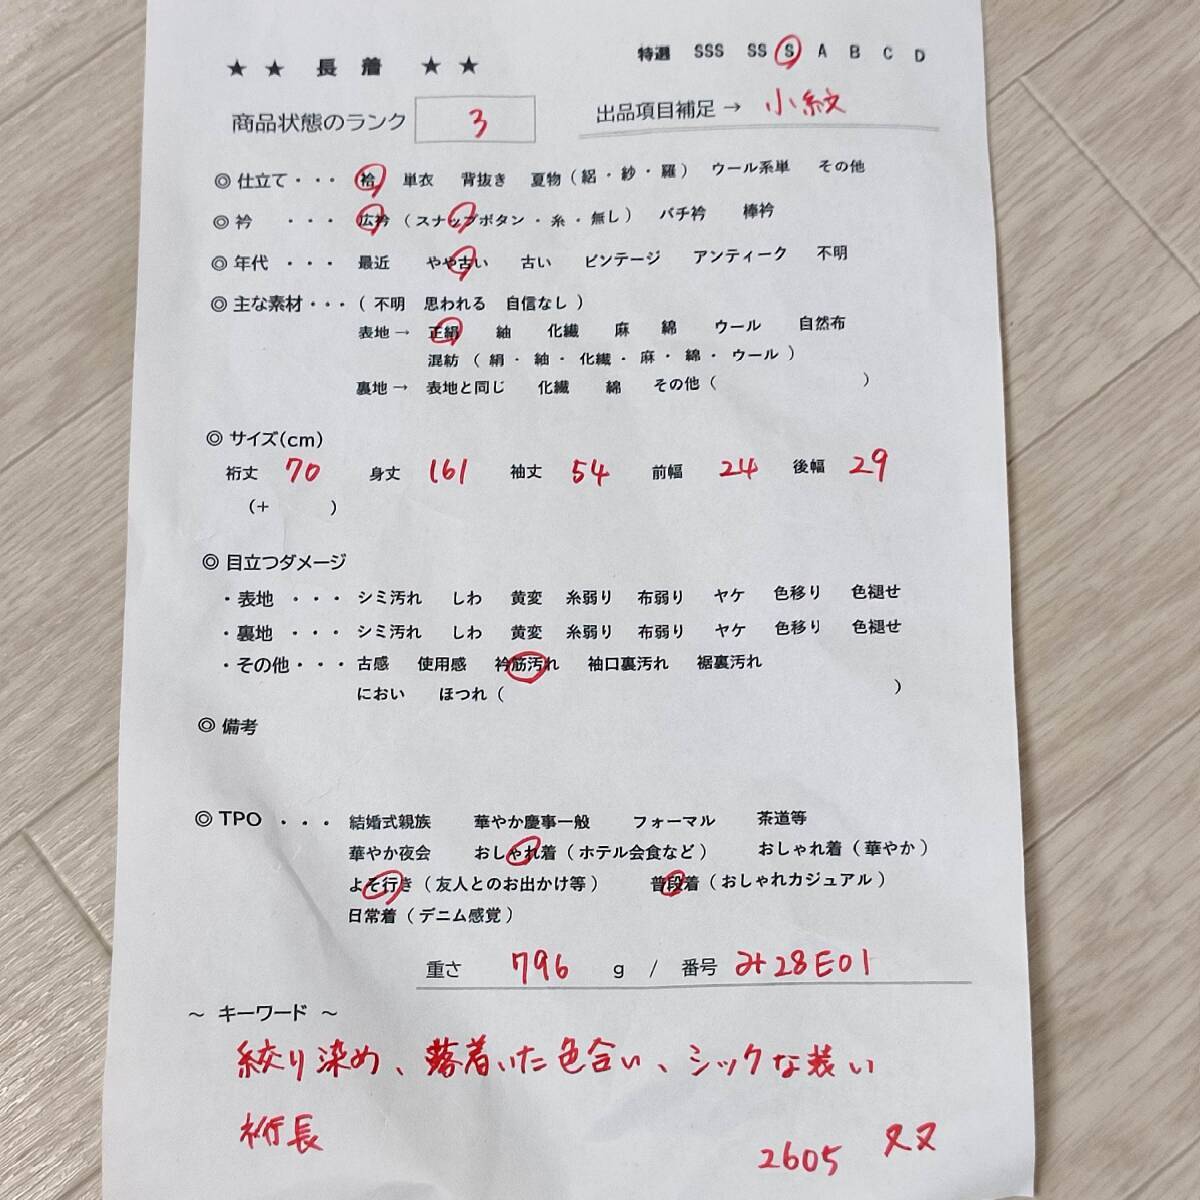 特選 SSS SS S A B C D
★ ★ 長 着 ★ ★
商品状態のランク 3 出品項目補足 → 小紋
◎ 仕立て・・・ 袷 単衣 背抜き 夏物（絽・紗・羅） ウール系単 その他
◎ 衿 ・・・ 広衿（スナップボタン・糸・無し） バチ衿 棒衿
◎ 年代 ・・・ 最近 やや古い 古い ビンテージ アンティーク 不明
◎ 主な素材・・・（不明 思われる 自信なし）
表地 → 正絹 紬 化繊 麻 綿 ウール 自然布
混紡（絹・紬・化繊・麻・綿・ウール）
裏地 → 表地と同じ 化繊 綿 その他（ ）
◎ サイズ(cm)
裄丈 70 身丈 161 袖丈 54 前幅 24 後幅 29
（+ ）
◎ 目立つダメージ
・表地 ・・・ シミ汚れ しわ 黄変 糸弱り 布弱り ヤケ 色移り 色褪せ
・裏地 ・・・ シミ汚れ しわ 黄変 糸弱り 布弱り ヤケ 色移り 色褪せ
・その他・・・ 古感 使用感 衿筋汚れ 袖口裏汚れ 裾裏汚れ
におい ほつれ（ ）
◎ 備考
◎ TPO ・・・ 結婚式親族 華やか慶事一般 フォーマル 茶道等
華やか夜会 おしゃれ着（ホテル会食など） おしゃれ着（華やか）
よそ行き（友人とのお出かけ等） 普段着（おしゃれカジュアル）
日常着（デニム感覚）
重さ 796 g / 番号 み28E01
～ キーワード ～
絞り染め、落着いた色合い、シックな装い
裄長
2605 ヌヌ